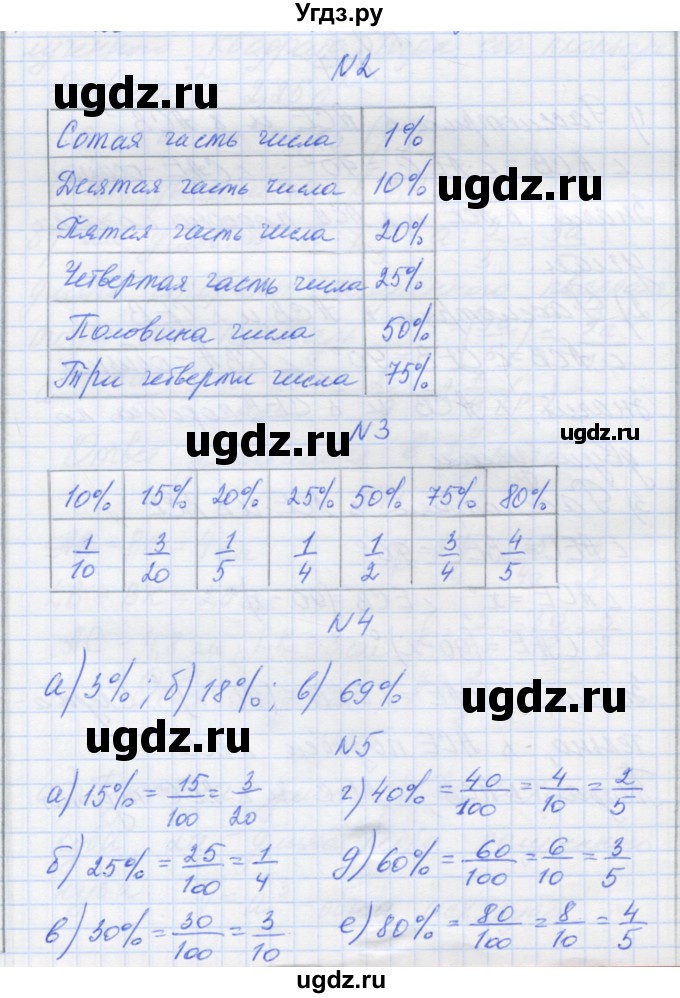 Угдз.ру
N2
ugdz.ru
Сотая часть числа 1%
Десятая часть числа 10%
ugdz.ru
Пятая часть числа 20%
Четвертая часть числа 25%
Половина числа 50%
Три четверти числа 75%
ugdz.ru
N3
ugdz.ru
10% 15% 20% 25% 50% 75% 80%
1/10 3/20 1/5 1/4 1/2 3/4 4/5
N4
а) 3%; б) 18%; в) 69%
ugdz.ru
ugdz.ru
N5
а) 15% = 15/100 = 3/20 г) 40% = 40/100 = 4/10 = 2/5
б) 25% = 25/100 = 1/4 д) 60% = 60/100 = 6/10 = 3/5
в) 30% = 30/100 = 3/10 е) 80% = 80/100 = 8/10 = 4/5
ugdz.ru